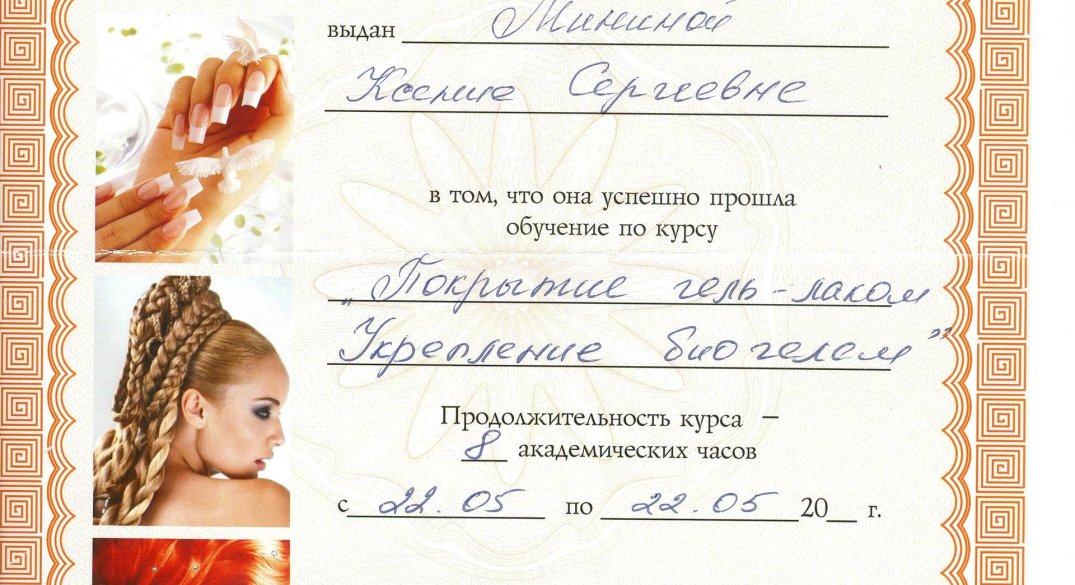 выдан Мининой
Ксение Сергеевне
в том, что она успешно прошла
обучение по курсу
„Покрытие гель-лаком
Укрепление биогелем”
Продолжительность курса –
8 академических часов
с 22.05 по 22.05 20__ г.